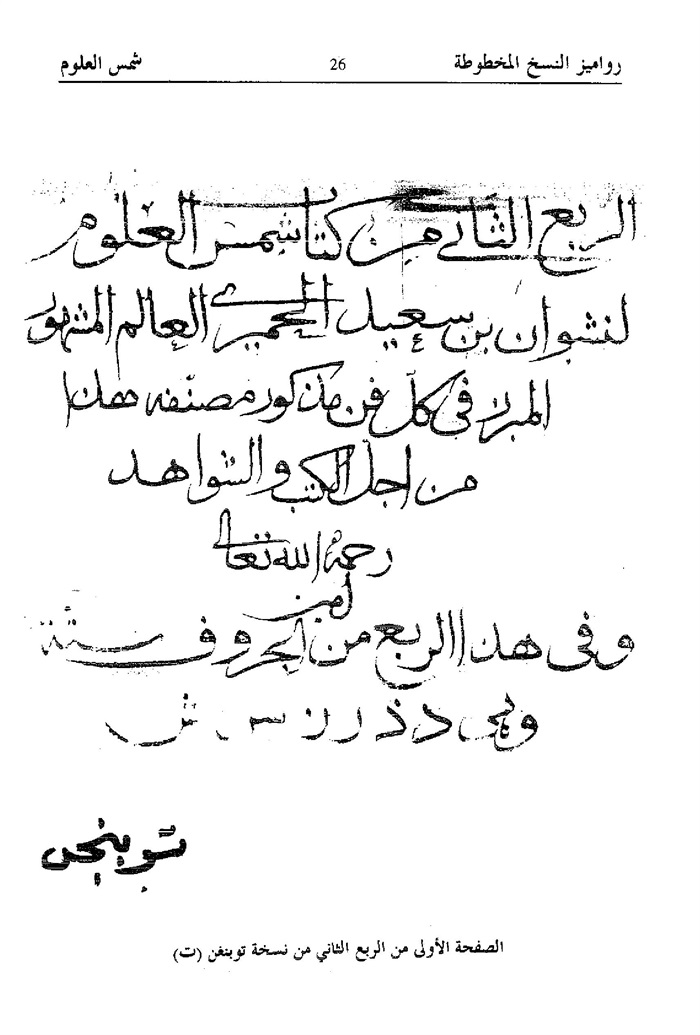 رواميز النسخ المخطوطة 26 شمس العلوم
الربع الثاني من كتاب شمس العلوم
لنشوان بن سعيد الحميري العالم المشهور
المبرز في كل فن مذكور مصنفه هذا
من اجل الكتب والشواهد
رحمه الله تعالى
امين
وفي هذا الربع من الحروف ستة
وهي د ذ ر ز س ش
توبنجن
الصفحة الأولى من الربع الثاني من نسخة توبنغن (ت)